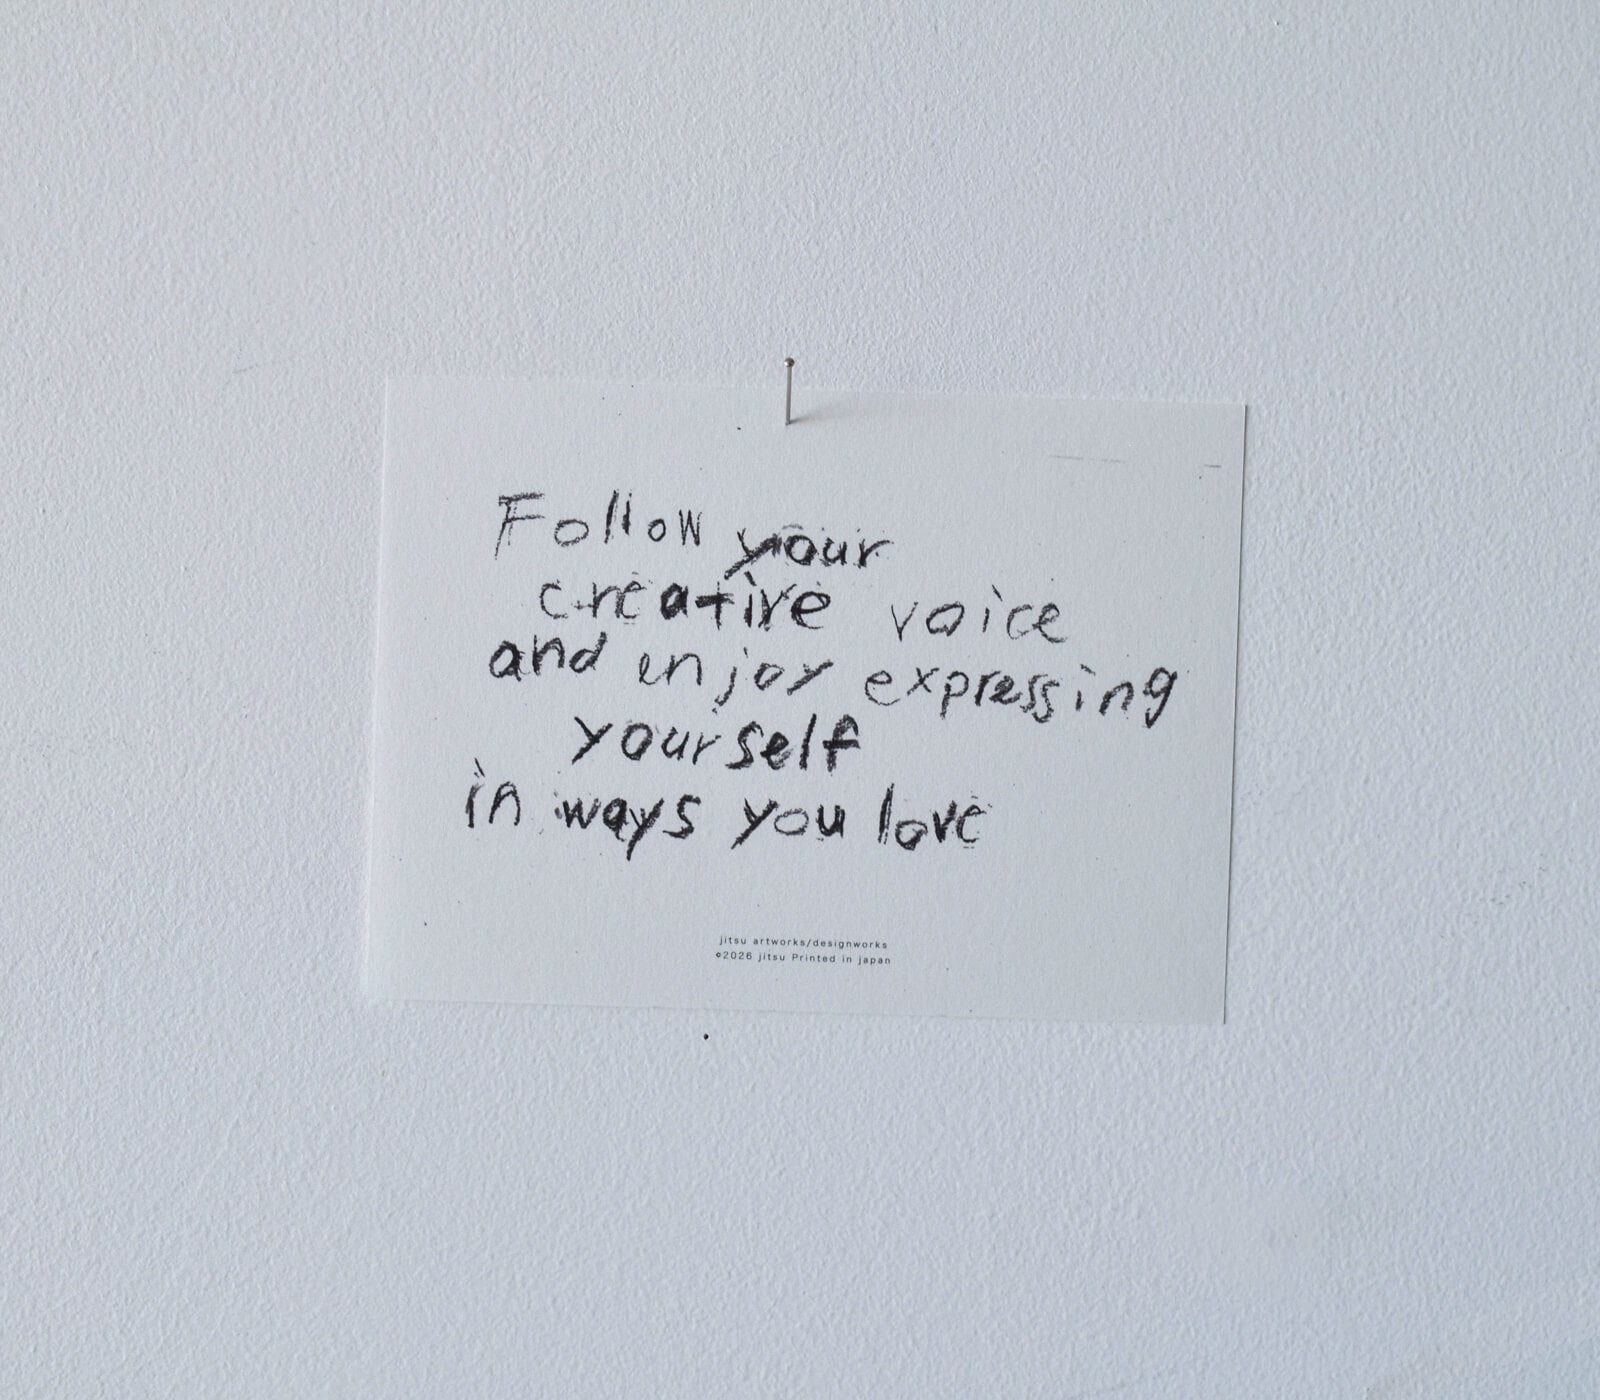 Follow your
creative voice
and enjoy expressing
yourself
in ways you love
jitsu artworks/designworks
©2026 jitsu Printed in japan